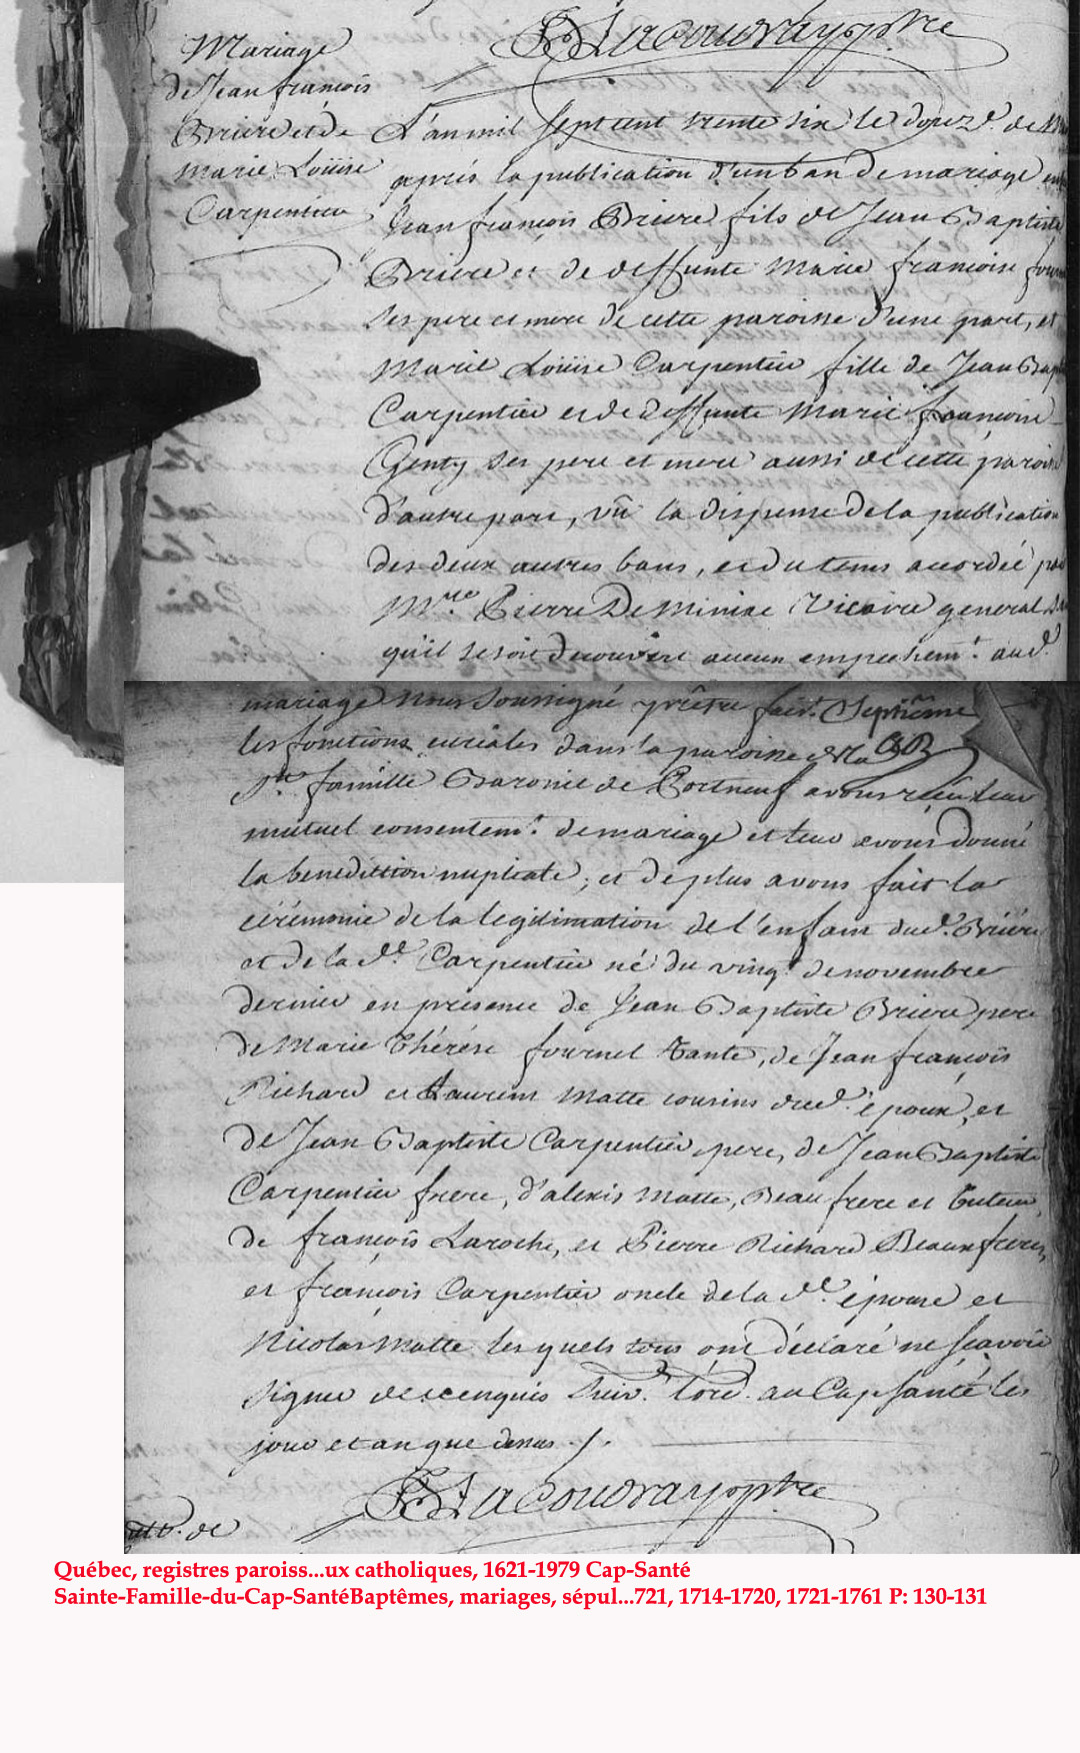 FBLacoudray ptre
Mariage
de Jean françois
Briere et de
Marie Loüise
Carpentier
L'an mil sept cent trente six le douze. de
après la publication d'un ban de mariage
Jean françois Briere fils de Jean Baptiste
Briere et de deffunte Marie francoise
ses pere et mere de cette paroisse d'une part, et
Marie Loüise Carpentier fille de Jean
Carpentier et de deffunte Marie françoise
Genty ses pere et mere aussi de cette paroisse
d'autre part, vû la dispense de la publication
des deux autres bans, et du tems accordée
Mre Pierre De Miniac Vicaire general
qu'il se soit decouvert aucun empechemt. aud.
mariage nous soussigné prêtre fait. Septième
les fonctions curiales dans la paroisse de la
Ste famille Baronie de Portneuf avons reçu leur
mutuel consentemt. de mariage et leur avons donné
la benediction nuptiale; et de plus avons fait la
cérémonie de la legitimation de l'enfant dud. Briere
et de la de. Carpentier né du vingt de novembre
dernier en présence de Jean Baptiste Briere pere
de Marie Thérése fournel tante, de Jean françois
Richard et Laurent Matte cousins dud. époux, et
de Jean Baptiste Carpentier pere, de Jean Baptiste
Carpentier frere, d'alexis Matte, Beau frere et tuteur,
de françois Laroche, et Pierre Richard Beaux freres,
et françois Carpentier oncle de la de. épouse et
Nicolas Matte les quels tous ont déclaré ne sçavoir
signer de ce enquis suiv. l'ord. au Cap santé les
jour et an que dessus ./.
FBLacoudray ptre
de
Québec, registres paroiss...ux catholiques, 1621-1979 Cap-Santé
Sainte-Famille-du-Cap-SantéBaptêmes, mariages, sépul...721, 1714-1720, 1721-1761 P: 130-131